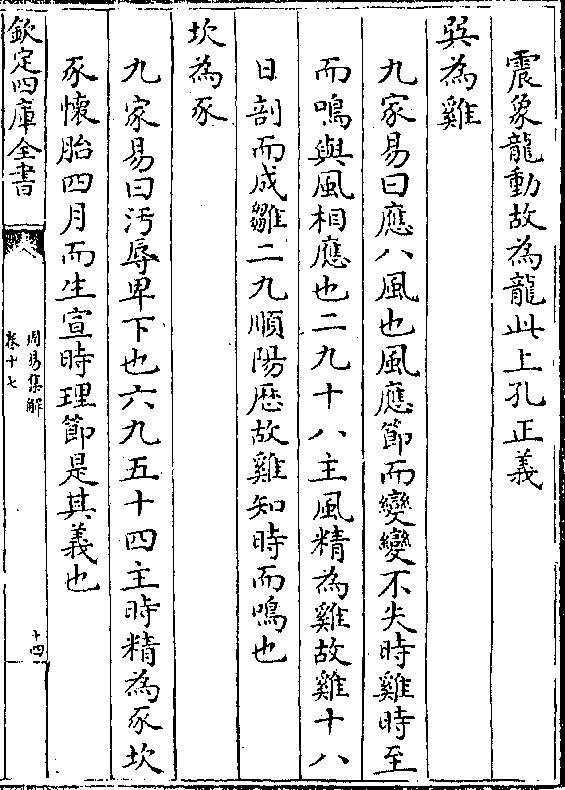 震象龍動故為龍此上孔正義
巽為雞
九家易曰應八風也風應節而變變不失時雞時至
而鳴與風相應也二九十八主風精為雞故雞十八
日剖而成雛二九順陽歴故雞知時而鳴也
坎為豕
九家易曰汚辱卑下也六九五十四主時精為豕坎
豕懷胎四月而生宣時理節是其義也
欽定四庫全書
周易集解
卷十七
十四